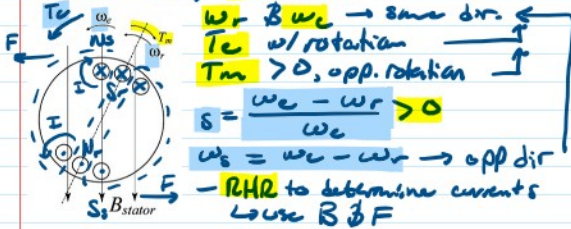 Te ωe Ns Tm ωr
F
I Sr
I Nr
F
Ss Bstator
ωr & ωe → same dir.
Te w/ rotation
Tm > 0, opp. rotation
s = ωe - ωr / ωe > 0
ωs = ωe - ωr → opp dir
- RHR to determine currents
↳ use B & F